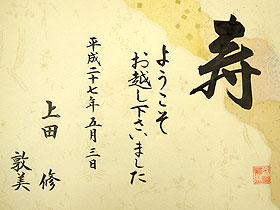 寿
ようこそ
お越し下さいました
平成二十七年 五月三日
上田 修
敦美